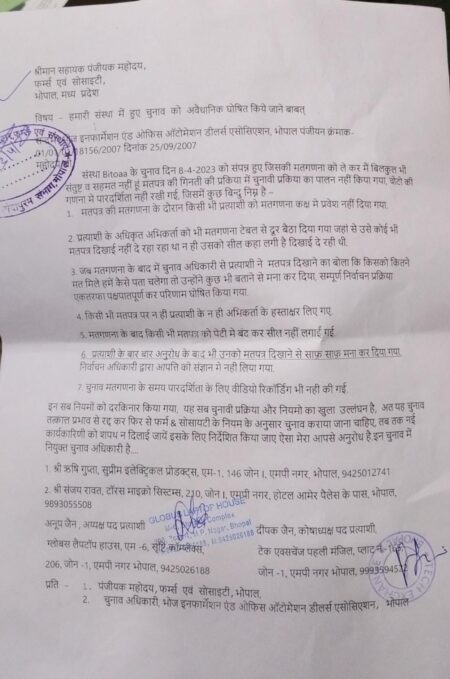 श्रीमान सहायक पंजीयक महोदय,
फर्म्स एवं सोसाइटी,
भोपाल, मध्य प्रदेश
विषय - हमारी संस्था में हुए चुनाव को अवैधानिक घोषित किये जाने बाबत्
भोज इनफार्मेशन एंड ओफिस ऑटोमेशन डीलर्स एसोसिएशन, भोपाल पंजीयन क्रंमाक-
01/01/ 18156/2007 दिनांक 25/09/2007
महोदय,
संस्था Bitoaa के चुनाव दिन 8-4-2023 को संपन्न हुए जिसकी मतगणना को ले कर में बिलकुल भी
संतुष्ट व सहमत नही हूं मतपत्र की गिनती की प्रकिया में चुनावी प्रकिया का पालन नही किया गया, वोटो की
गणना में पारदर्शिता नही रखी गई, जिसमें कुछ बिन्दु निम्न है –
1. मतपत्र की मतगणना के दौरान किसी भी प्रत्याशी को मतगणना कक्ष मे प्रवेश नही दिया गया.
2. प्रत्याशी के अधिकृत अभिकर्ता को भी मतगणना टेबल से दूर बैठा दिया गया जहां से उसे कोई भी
मतपत्र दिखाई नहीं दे रहा रहा था न ही उसको सील कहा लगी है दिखाई दे रही थी.
3. जब मतगणना के बाद में चुनाव अधिकारी से प्रत्याशी ने मतपत्र दिखाने का बोला कि किसको कितने
मत मिले हमें कैसे पता चलेगा तो उन्होंने कुछ भी बताने से मना कर दिया, सम्पूर्ण निर्वाचन प्रक्रिया
एकतरफा पक्षपातपूर्ण कर परिणाम घोषित किया गया.
4. किसी भी मतपत्र पर न ही प्रत्याशी के न ही अभिकर्ता के हस्ताक्षर लिए गए.
5. मतगणना के बाद किसी भी मतपत्र को पेटी मे बंट कर सील नहीं लगाई गई.
6. प्रत्याशी के बार बार अनुरोध के बाद भी उनको मतपत्र दिखाने से साफ़ साफ़ मना कर दिया गया.
निर्वाचन अधिकारी द्वारा आपत्ति को संज्ञान मे नही लिया गया.
7. चुनाव मतगणना के समय पारदर्शिता के लिए वीडियो रिकॉर्डिंग भी नही की गई.
इन सब नियमों को दरकिनार किया गया, यह सब चुनावी प्रक्रिया और नियमो का खुला उल्लघंन है, अत यह चुनाव
तत्काल प्रभाव से रद्द कर फिर से फर्म & सोसायटी के नियम के अनुसार चुनाव कराया जाना चाहिए, तब तक नई
कार्यकारिणी को शपथ न दिलाई जायें इसके लिए निर्देशित किया जाए ऐसा मेरा आपसे अनुरोध है.इन चुनाव में
नियुक्त चुनाव अधिकारी है...
1. श्री ऋषि गुप्ता, सुप्रीम इलेक्ट्रिकल प्रोडक्ट्स, एम-1, 146 जोन।, एमपी नगर, भोपाल, 9425012741
2. श्री संजय रावत, टॉरस माइक्रो सिस्टम्स, 210, जोन।, एमपी नगर, होटल आमेर पैलेस के पास, भोपाल,
9893055508
GLOBUS LAPTOP HOUSE
अनूप जैन , अध्यक्ष पद प्रत्याशी
दीपक जैन, कोषाध्यक्ष पद प्रत्याशी,
ग्लोबस लैपटॉप हाउस, एम -6, सृष्टि कॉम्प्लेक्स,
टेक एक्सचेंज पहली मंजिल, प्लाट
206, जोन -1, एमपी नगर भोपाल, 9425026188
जोन -1, एमपी नगर भोपाल,
प्रति - 1. पंजीयक महोदय, फर्म्स एवं सोसाइटी, भोपाल,
2. चुनाव अधिकारी, भोज इनफार्मेशन एंड ओफिस ऑटोमेशन डीलर्स एसोसिएशन, भोपाल